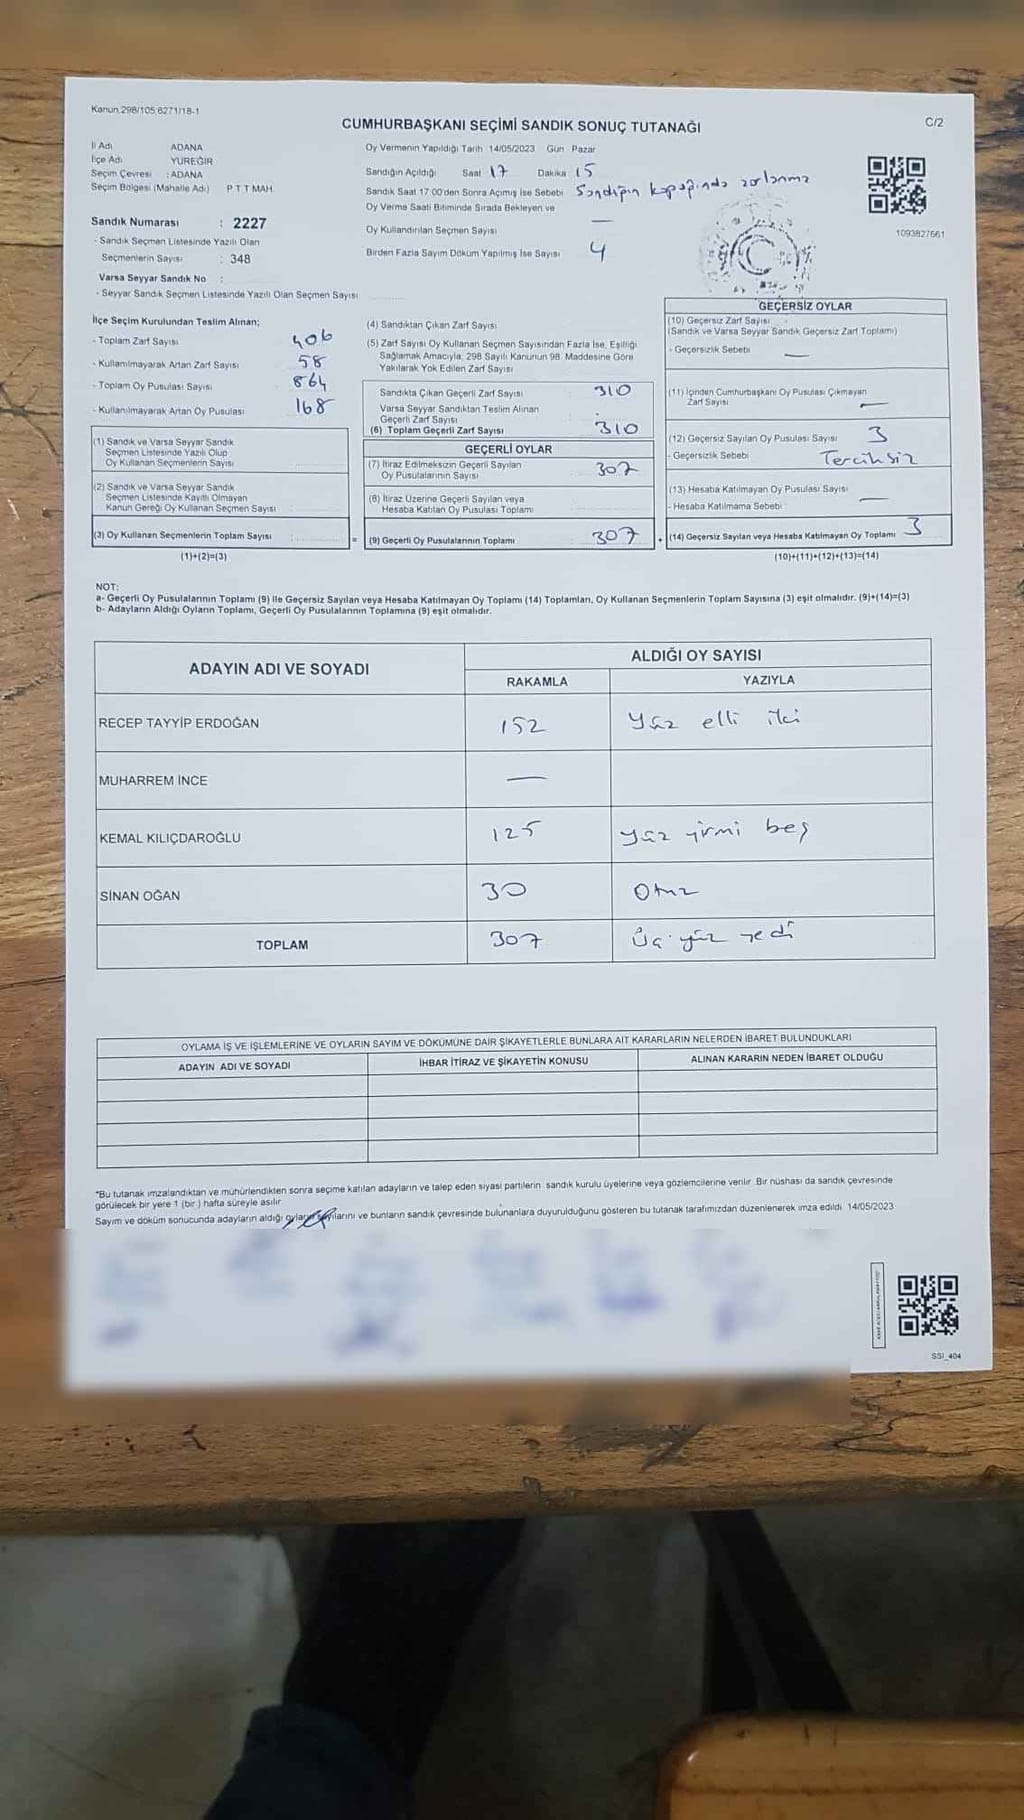 Kanun 298/105,6271/18-1
C/2
CUMHURBAŞKANI SEÇİMİ SANDIK SONUÇ TUTANAĞI
İl Adı ADANA
İlçe Adı YÜREĞİR
Seçim Çevresi : ADANA
Seçim Bölgesi (Mahalle Adı) P T T MAH.
Oy Vermenin Yapıldığı Tarih 14/05/2023 Gün Pazar
Sandığın Açıldığı Saat 17 Dakika 15
Sandık Saat 17 00'den Sonra Açımış İse Sebebi Sandığın kapağında zorlanma
Oy Verme Saati Bitiminde Sırada Bekleyen ve
Oy Kullandırılan Seçmen Sayısı —
Birden Fazla Sayım Döküm Yapılmış İse Sayısı 4
1093827661
Sandık Numarası : 2227
- Sandık Seçmen Listesinde Yazılı Olan
Seçmenlerin Sayısı : 348
Varsa Seyyar Sandık No :
- Seyyar Sandık Seçmen Listesinde Yazılı Olan Seçmen Sayısı
İlçe Seçim Kurulundan Teslim Alınan;
- Toplam Zarf Sayısı 406
- Kullanılmayarak Artan Zarf Sayısı 58
- Toplam Oy Pusulası Sayısı 864
- Kullanılmayarak Artan Oy Pusulası 168
(1) Sandık ve Varsa Seyyar Sandık
Seçmen Listesinde Yazılı Olup
Oy Kullanan Seçmenlerin Sayısı
(2) Sandık ve Varsa Seyyar Sandık
Seçmen Listesinde Kayıtlı Olmayan
Kanun Gereği Oy Kullanan Seçmen Sayısı
(3) Oy Kullanan Seçmenlerin Toplam Sayısı
(1)+(2)=(3)
=
(4) Sandıktan Çıkan Zarf Sayısı
(5) Zarf Sayısı Oy Kullanan Seçmen Sayısından Fazla İse, Eşitliği
Sağlamak Amacıyla, 298 Sayılı Kanunun 98. Maddesine Göre
Yakılarak Yok Edilen Zarf Sayısı
Sandıkta Çıkan Geçerli Zarf Sayısı 310
Varsa Seyyar Sandıktan Teslim Alınan
Geçerli Zarf Sayısı
(6) Toplam Geçerli Zarf Sayısı 310
GEÇERLİ OYLAR
(7) İtiraz Edilmeksizin Geçerli Sayılan
Oy Pusulalarının Sayısı 307
(8) İtiraz Üzerine Geçerli Sayılan veya
Hesaba Katılan Oy Pusulası Toplamı
(9) Geçerli Oy Pusulalarının Toplamı 307
+
GEÇERSİZ OYLAR
(10) Geçersiz Zarf Sayısı
(Sandık ve Varsa Seyyar Sandık Geçersiz Zarf Toplamı)
- Geçersizlik Sebebi —
(11) İçinden Cumhurbaşkanı Oy Pusulası Çıkmayan
Zarf Sayısı —
(12) Geçersiz Sayılan Oy Pusulası Sayısı 3
- Geçersizlik Sebebi Tercihsiz
(13) Hesaba Katılmayan Oy Pusulası Sayısı —
- Hesaba Katılmama Sebebi
(14) Geçersiz Sayılan veya Hesaba Katılmayan Oy Toplamı 3
(10)+(11)+(12)+(13)=(14)
NOT:
a- Geçerli Oy Pusulalarının Toplamı (9) İle Geçersiz Sayılan veya Hesaba Katılmayan Oy Toplamı (14) Toplamları, Oy Kullanan Seçmenlerin Toplam Sayısına (3) eşit olmalıdır. (9)+(14)=(3)
b- Adayların Aldığı Oyların Toplamı, Geçerli Oy Pusulalarının Toplamına (9) eşit olmalıdır.
ADAYIN ADI VE SOYADI
ALDIĞI OY SAYISI
RAKAMLA YAZIYLA
RECEP TAYYİP ERDOĞAN 152 Yüz elli iki
MUHARREM İNCE —
KEMAL KILIÇDAROĞLU 125 yüz yirmi beş
SİNAN OĞAN 30 Otuz
TOPLAM 307 Üç yüz yedi
OYLAMA İŞ VE İŞLEMLERİNE VE OYLARIN SAYIM VE DÖKÜMÜNE DAİR ŞİKAYETLERLE BUNLARA AİT KARARLARIN NELERDEN İBARET BULUNDUKLARI
ADAYIN ADI VE SOYADI İHBAR İTİRAZ VE ŞİKAYETİN KONUSU ALINAN KARARIN NEDEN İBARET OLDUĞU
*Bu tutanak imzalandıktan ve mühürlendikten sonra seçime katılan adayların ve talep eden siyasi partilerin sandık kurulu üyelerine veya gözlemcilerine verilir. Bir nüshası da sandık çevresinde
görülecek bir yere 1 (bir) hafta süreyle asılır
Sayım ve döküm sonucunda adayların aldığı oyların sayılarını ve bunların sandık çevresinde bulunanlara duyurulduğunu gösteren bu tutanak tarafımızdan düzenlenerek imza edildi 14/05/2023
SSI_404